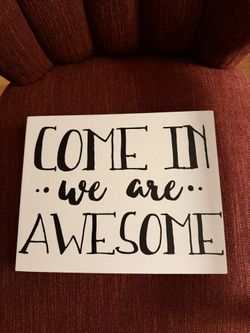 COME IN
·· we are ··
AWESOME